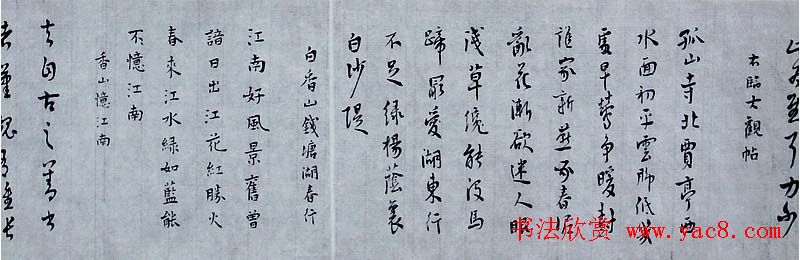 右臨大觀帖
孤山寺北賈亭西
水面初平雲脚低幾
處早鶯争暖樹
誰家新燕啄春泥
亂花漸欲迷人眼
淺草纔能沒馬
蹄最愛湖東行
不足綠楊蔭裏
白沙堤
白香山錢塘湖春行
江南好風景舊曾
諳日出江花紅勝火
春來江水綠如藍能
不憶江南
香山憶江南
夫自古之善書
者漢魏有鍾張
书法欣赏 www.yac8.com